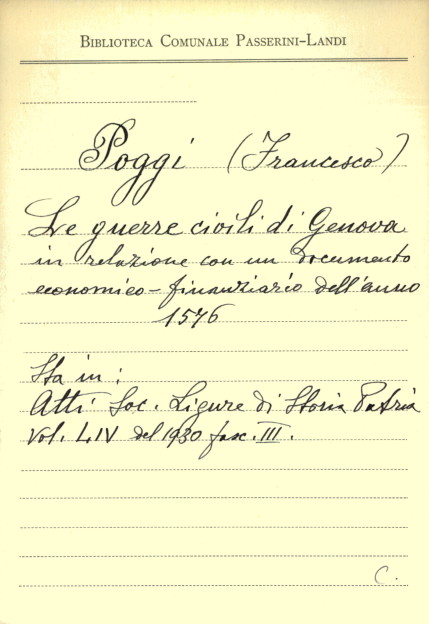 BIBLIOTECA COMUNALE PASSERINI-LANDI
Poggi (Francesco)
Le guerre civili di Genova
in relazione con un documento
economico-finanziario dell'anno
1576
Sta in:
Atti Soc. Ligure di Storia Patria
Vol. LIV del 1930 fasc. III.
C.